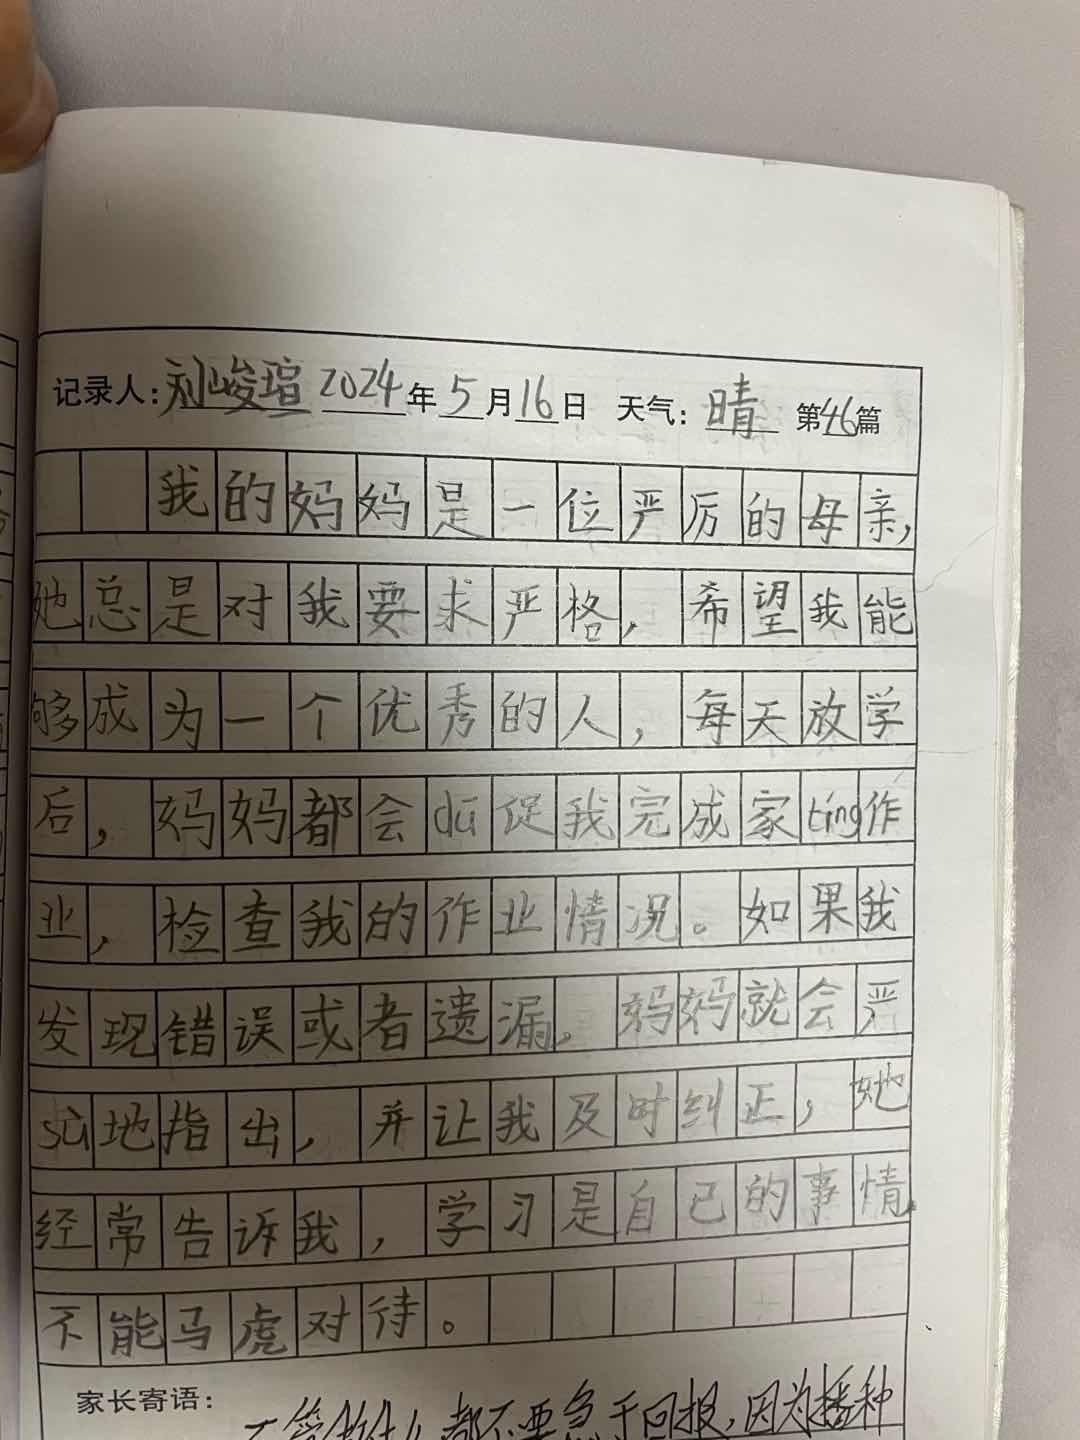 记录人:刘峻瑄 2024年5月16日 天气:晴 第46篇
我的妈妈是一位严厉的母亲,
她总是对我要求严格,希望我能
够成为一个优秀的人,每天放学
后,妈妈都会dū促我完成家tíng作
业,检查我的作业情况。如果我
发现错误或者遗漏,妈妈就会严
sù地指出,并让我及时纠正,她
经常告诉我,学习是自己的事情,
不能马虎对待。
家长寄语:
都不要急于回报,因为播种